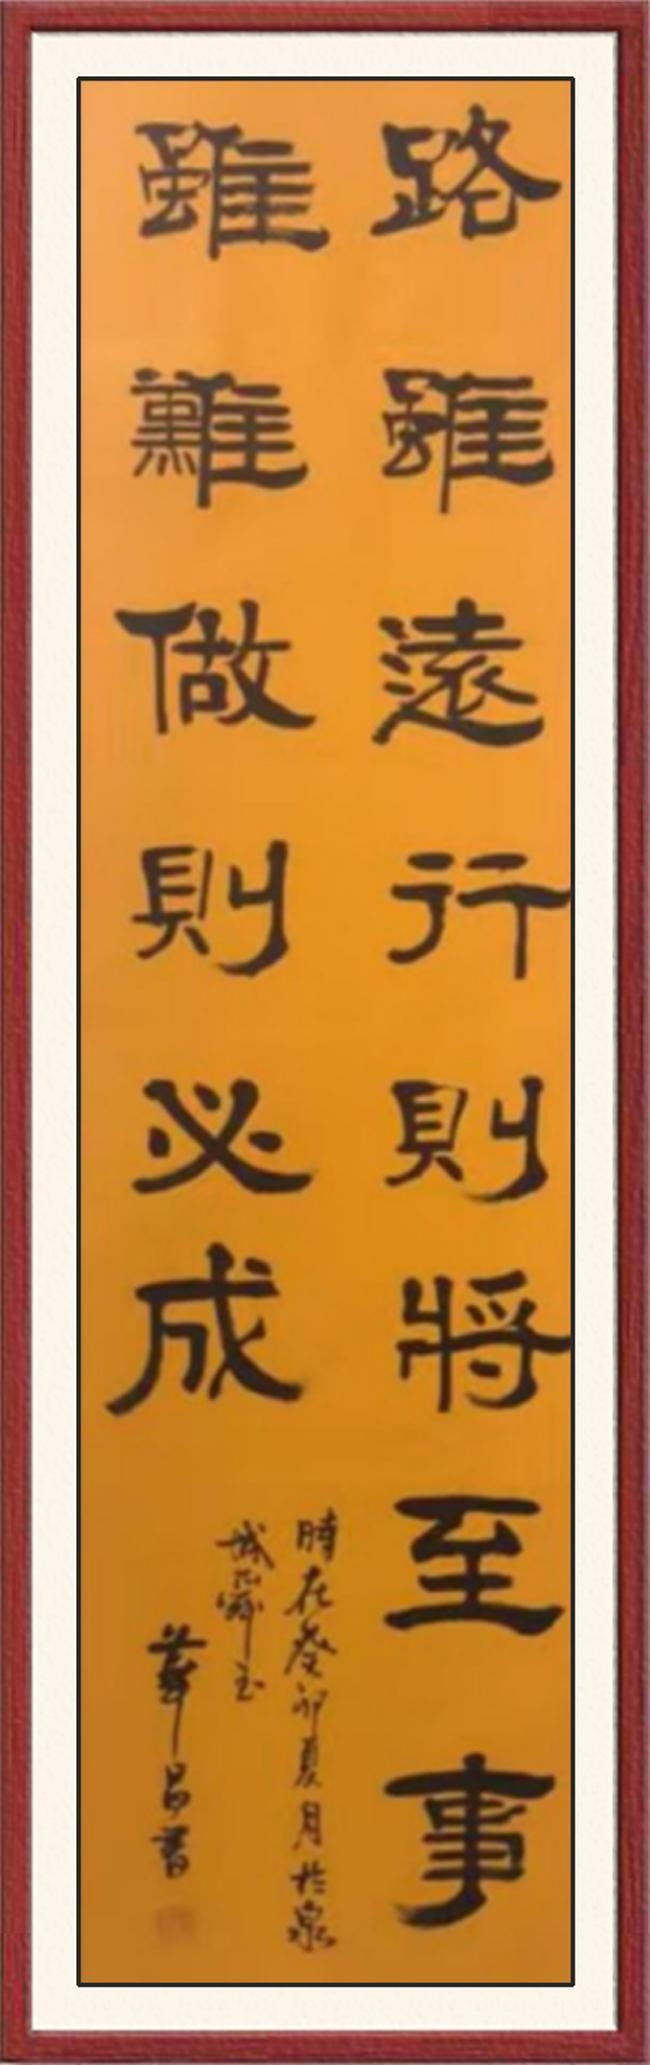 路雖遠行則將至事
雖難做則必成
時在癸卯夏月於泉
城舜玉
華昌書